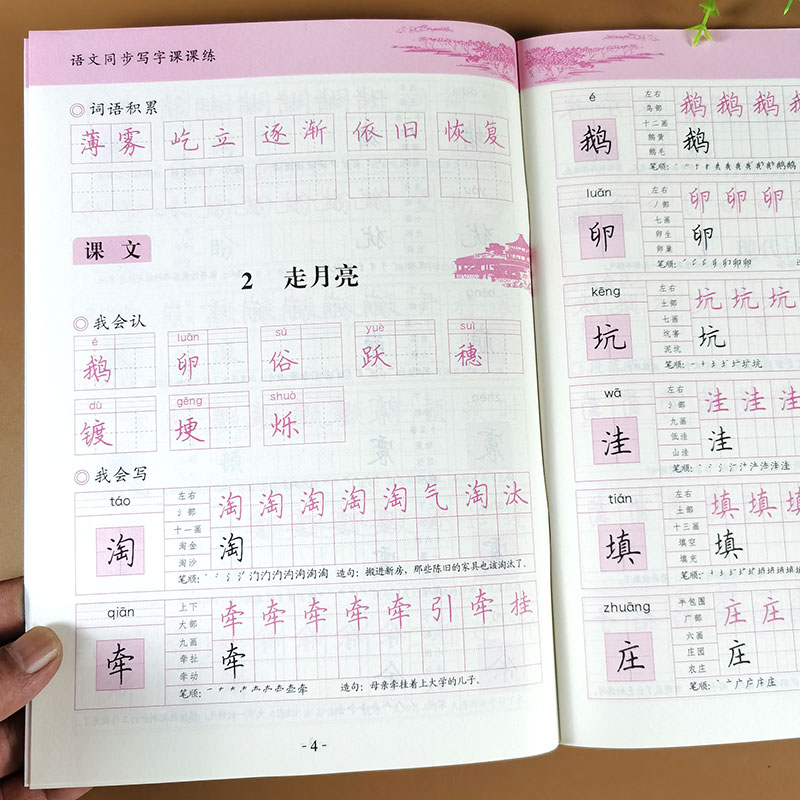 语文同步写字课课练
词语积累
薄雾 屹立 逐渐 依旧 恢复
课文
2 走月亮
我会认
é luǎn sú yuè suì
鹅 卵 俗 跃 穗
dù gěng shuò
镀 埂 烁
我会写
táo
淘
左右
氵部
十一画
淘金
淘沙
淘 淘 淘 淘 淘 气 淘 汰
淘
笔顺:
造句：搬进新房，那些陈旧的家具也该淘汰了。
qiān
牵
上下
大部
九画
牵扯
牵动
牵 牵 牵 牵 牵 引 牵 挂
牵
笔顺:
造句：母亲牵挂着上大学的儿子。
- 4 -
é
鹅
左右
鸟部
十二画
鹅黄
鹅毛
鹅 鹅 鹅 鹅
鹅
笔顺:
luǎn
卵
左右
丿部
七画
卵生
卵巢
卵 卵 卵
卵
笔顺:
kēng
坑
左右
土部
七画
坑害
泥坑
坑 坑 坑
坑
笔顺:
wā
洼
左右
氵部
九画
低洼
山洼
洼 洼 洼
洼
笔顺:
tián
填
左右
土部
十三画
填空
填充
填 填 填
填
笔顺:
zhuāng
庄
半包围
广部
六画
庄园
农庄
庄 庄
庄
笔顺: